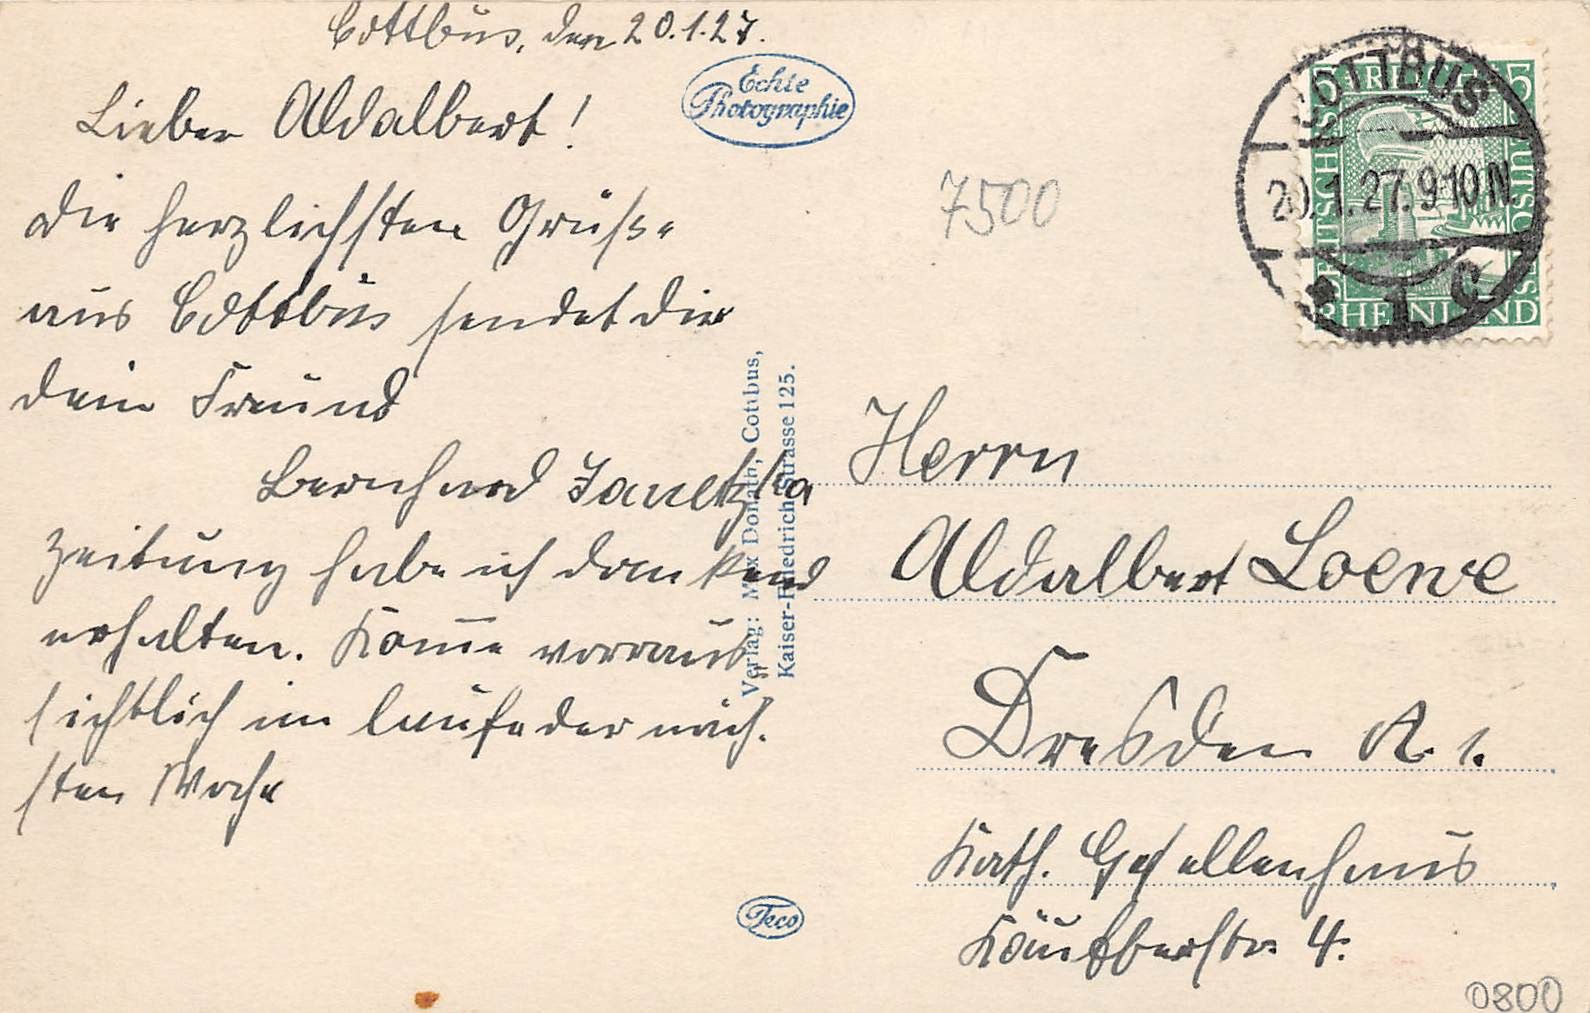 Cottbus, den 20.1.27.
Lieber Aldalbert!
die herzlichsten Grüße
aus Cottbus sendet dir
dein Freund
Bernhard
Zeitung habe ich dankend
erhalten. Kom̅e vorraus-
sichtlich im laufe der näch.
sten Woche
Echte
Photographie
7500
Verlag: Max Donath, Cottbus,
Kaiser-Friedrichstrasse 125.
Teco
COTTBUS
20.1.27. 9-10 N
* 1 c
5 REICH 5
DEUTSCHES
DEUTSCHES
RHEINLAND
Herrn
Aldalbert Loewe
Dresden A. 1.
Kath. Gesellenhaus
Käufferstr. 4.
0800